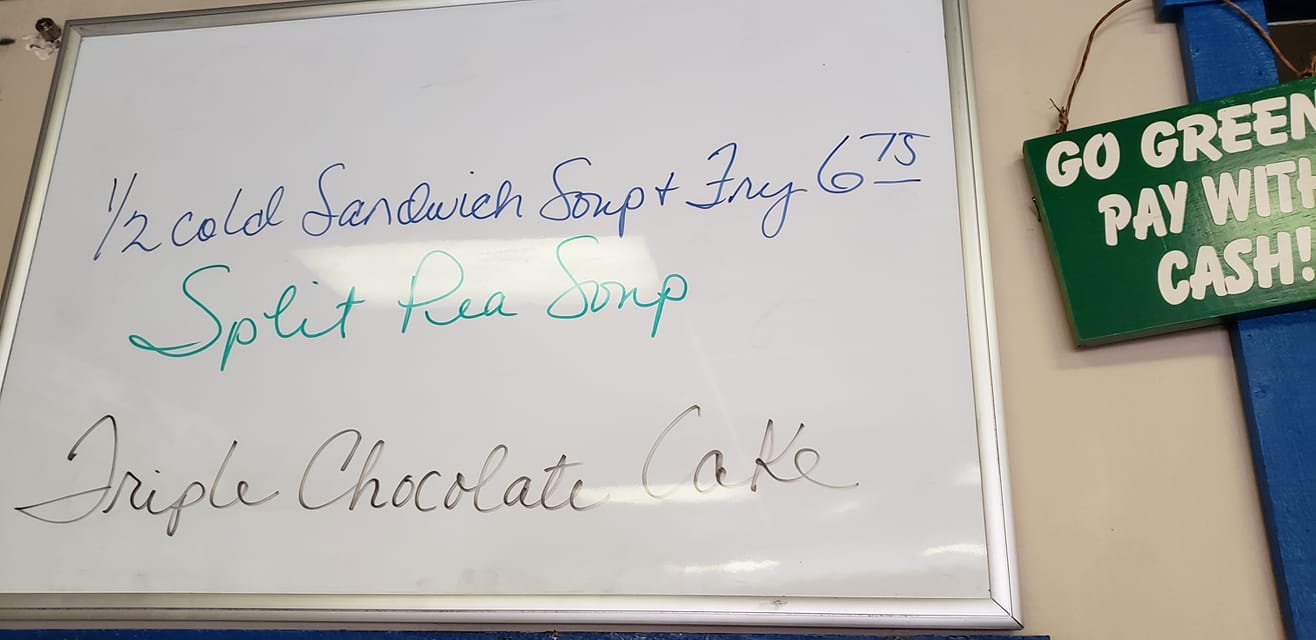 1/2 cold Sandwich Soup + Fry 6 75
Split Pea Soup
Triple Chocolate Cake
GO GREEN
PAY WITH
CASH!